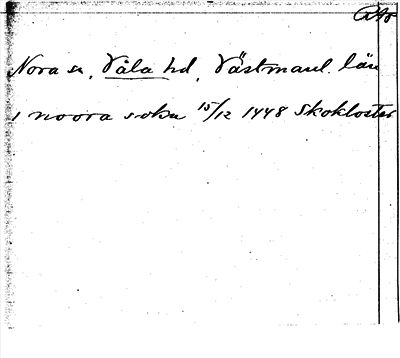 Nora sn, Våla hd, Västmanl. län
i noora sokn 15/12 1448 Skokloster